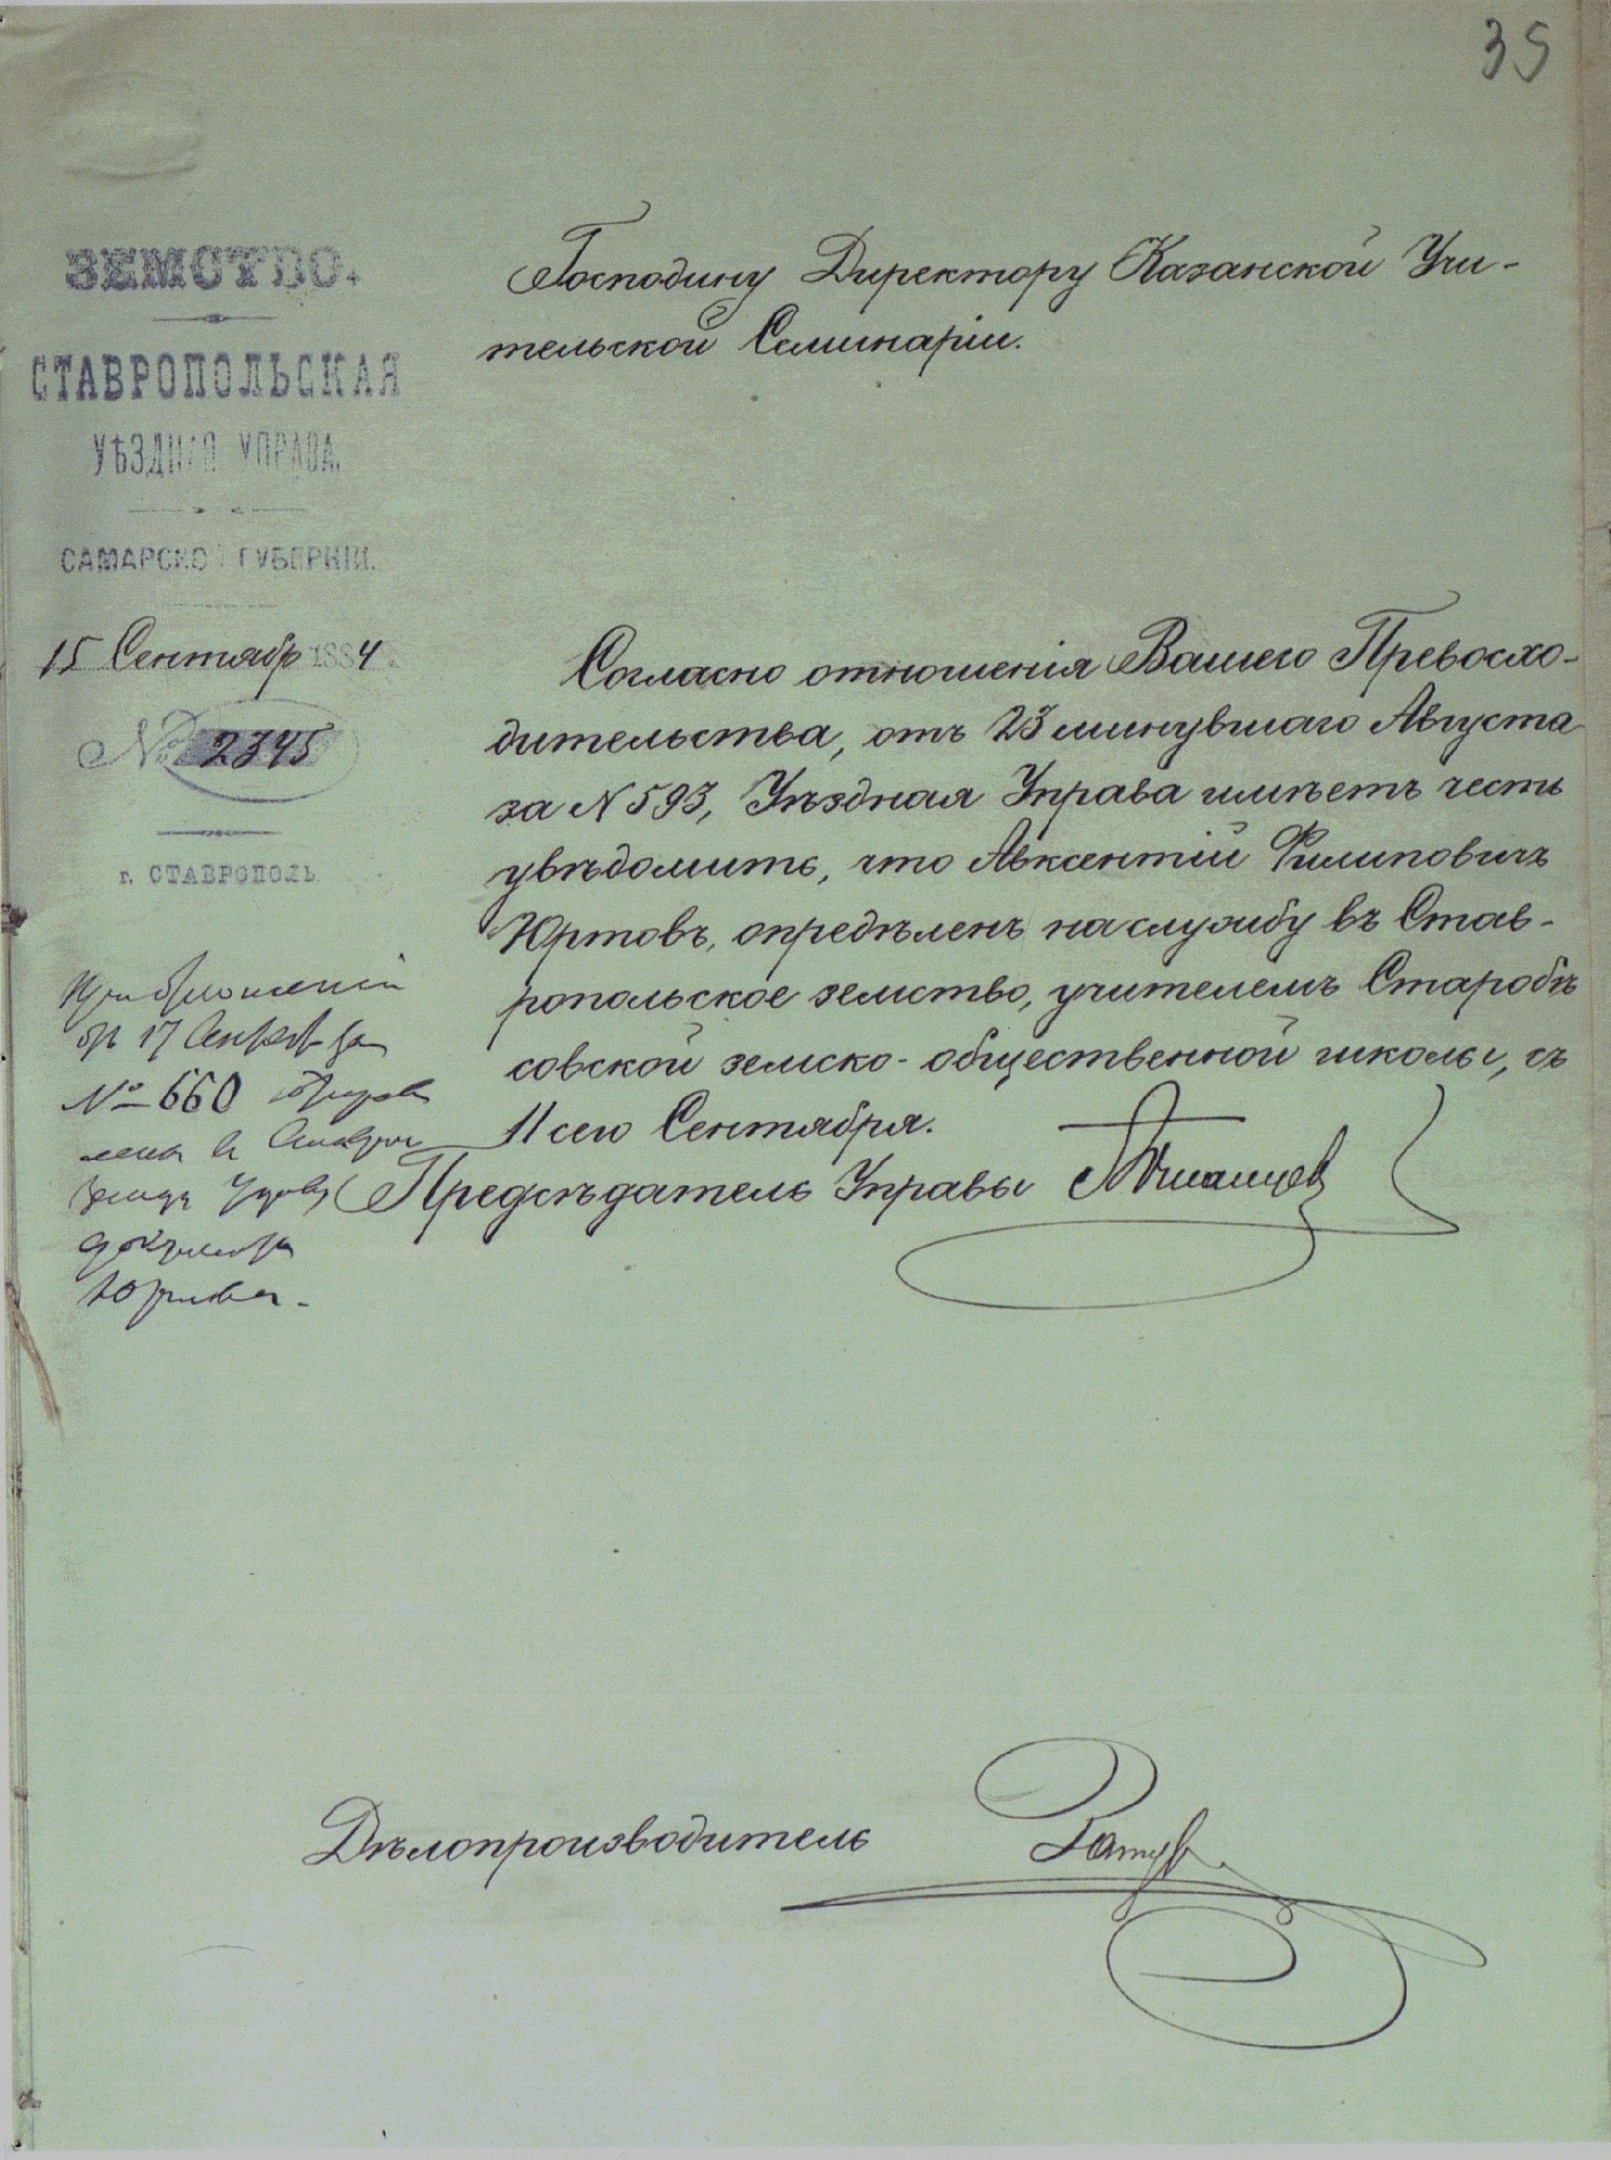 35
ЗЕМСТВО.
СТАВРОПОЛЬСКАЯ
УѢЗДНАЯ УПРАВА.
САМАРСКОЙ ГУБЕРНІИ.
15 Сентябр 1884
№ 2345
г. СТАВРОПОЛЬ
Господину Директору Казанской Учи-
тельской Семинаріи.
Согласно отношенія Вашего Превосхо-
дительства, отъ 23 минувшаго Августа
за N 593, Уѣздная Управа имѣетъ честь
увѣдомить, что Авксентій Филиповичъ
Юртовъ, опредѣленъ на службу въ Став-
ропольское земство, учителемъ Старобѣ
совской земско-общественной школы, съ
11 сего Сентября.
Предсѣдатель Управы
При отношеніи
17 за
№ 660
Юртова.
Дѣлопроизводитель